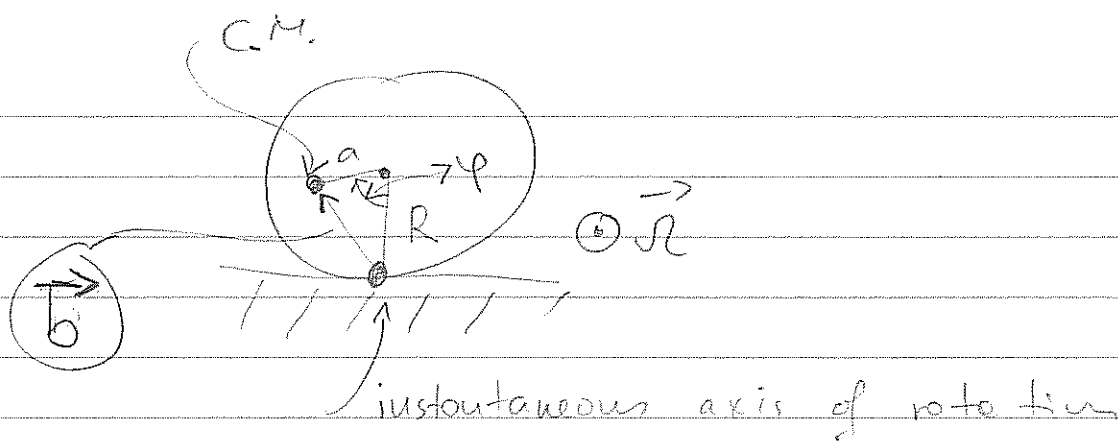 C.M.
a
φ
R
Ω
b
instoutaneous axis of rotation